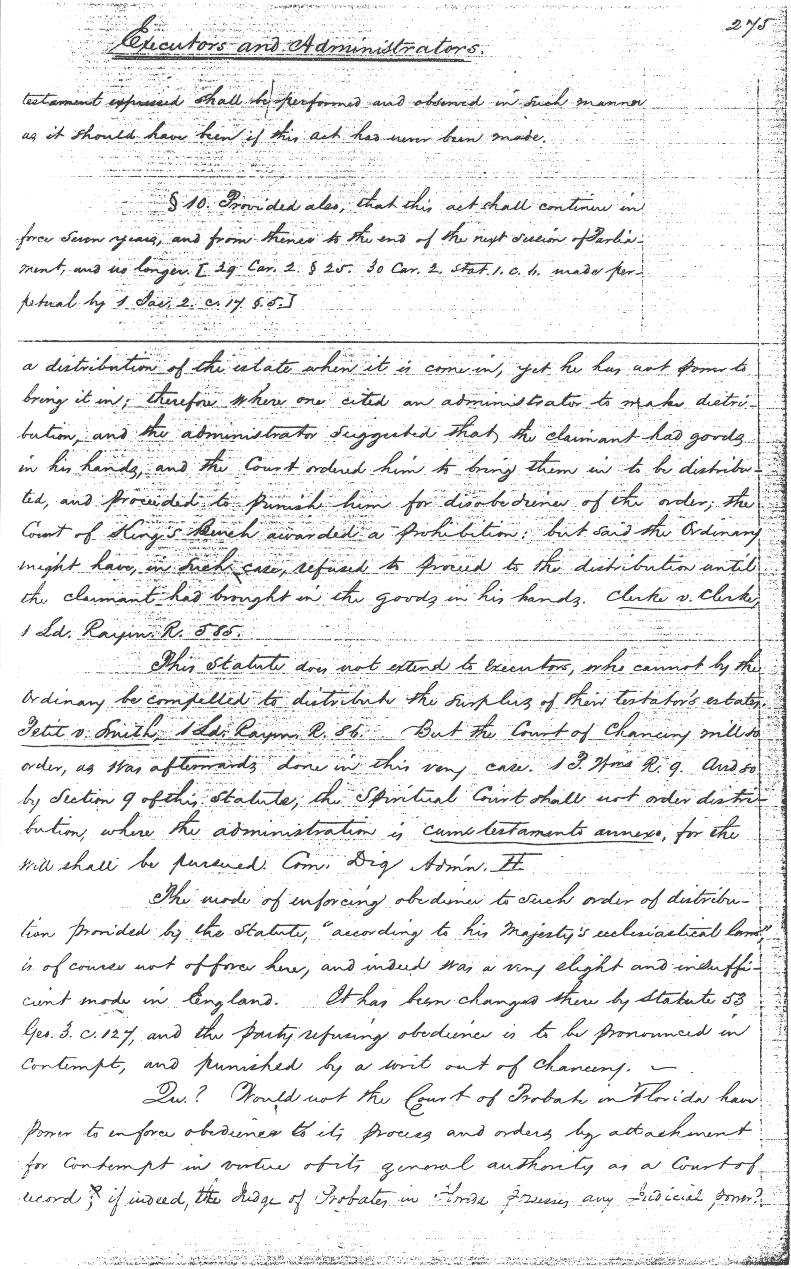 275
Executors and Administrators.
testament expressed shall be performed and observed in such manner
as it should have been if this act had never been made.
§ 10. Provided also, that this act shall continue in
force seven years, and from thence to the end of the next session of Parlia-
ment, and no longer. [29 Car. 2. § 25. 30 Car. 2. Stat. 1. c. 6. made per-
petual by 1 Jac. 2. c. 17. § 5.]
a distribution of the estate when it is come in, yet he has not power to
bring it in; therefore where one cited an administrator to make distri-
bution, and the administrator suggested that the claimant had goods
in his hands, and the Court ordered him to bring them in to be distribu-
ted, and proceeded to punish him for disobedience of the order; the
Court of King's Bench awarded a prohibition: but said the Ordinary
might have, in such case, refused to proceed to the distribution until
the claimant had brought in the goods in his hands. Clerke v. Clerke,
1 Ld. Raym. R. 585.
This Statute does not extend to executors, who cannot by the
Ordinary be compelled to distribute the surplus of their testator's estates.
Petit v. Smith, 1 Ld. Raym. R. 86. But the Court of Chancery will so
order, as was afterwards done in this very case. 1 P. Wms R. 9. And so
by Section 9 of this Statute, the Spiritual Court shall not order distri-
bution, where the administration is cum testamento annexo, for the
will shall be pursued. Com. Dig Admn. H.
The mode of enforcing obedience to such order of distribu-
tion provided by the Statute, "according to his Majesty's ecclesiastical laws,"
is of course not of force here, and indeed was a very slight and insuffi-
cient mode in England. It has been changed there by Statute 53
Geo. 3. c. 127, and the party refusing obedience is to be pronounced in
contempt, and punished by a writ out of chancery. —
Qu.? Would not the Court of Probate in Florida have
power to enforce obedience to its process and orders by attachment
for contempt in virtue of its general authority as a Court of
record; if indeed, the Judge of Probates in Florida possesses any Judicial power?